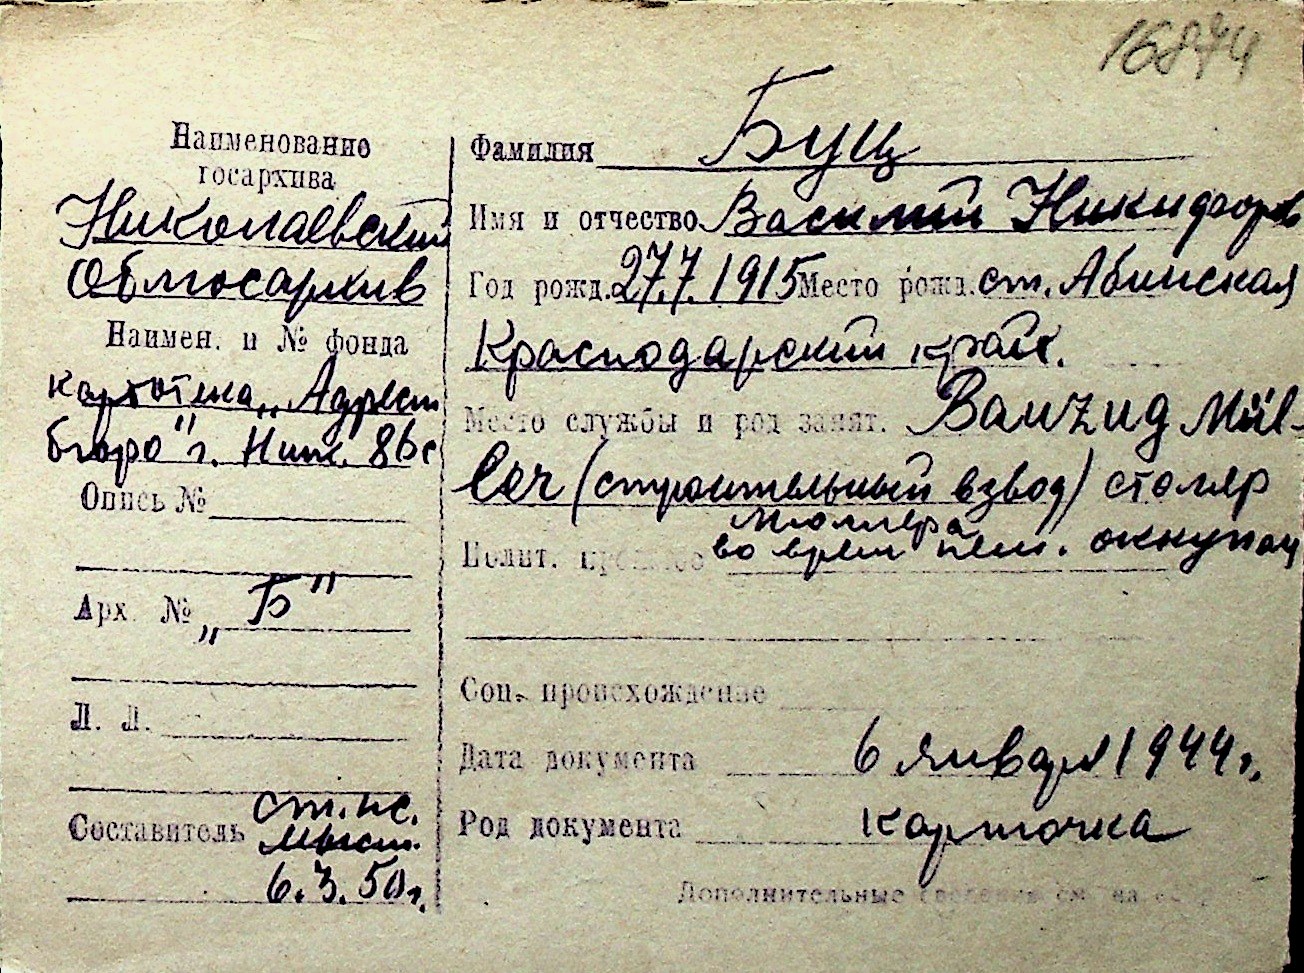 16874
Наименование
госархива
Николаевский
Облгосархив
Наимен. и № фонда
картотека „Адресн
бюро" г. Ник.
Опись №
Арх. № „Б"
Л. Л.
Составитель ст. нс.
6.3.50г.
Фамилия Буц
Имя и отчество Василий Никифоров
Год рожд. 27.7.1915 Место рожд. ст. Абинская
Краснодарский край.
Место службы и род занят. Bauzug Mül-
ler (строительный взвод) столяр
Мюллера
Полит. во врем нем. оккупац
Соц. происхождение
Дата документа 6 января 1944 г.
Род документа карточка
Дополнительные сведения см. на